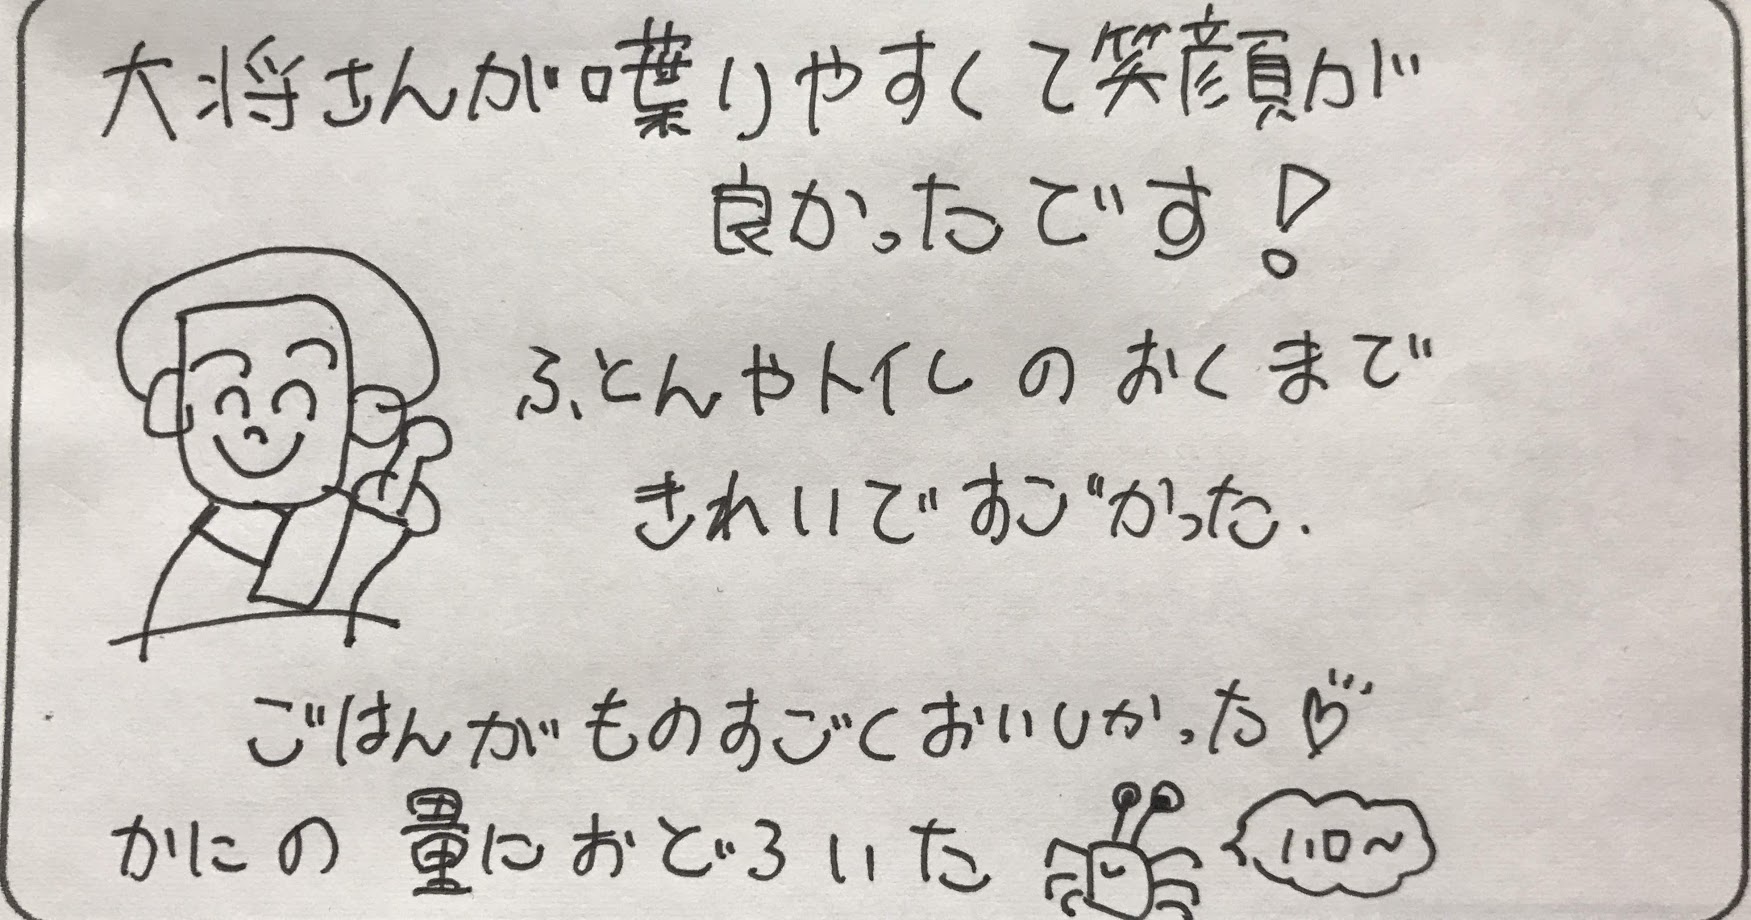 大将さんが喋りやすくて笑顔が
良かったです!
ふとんやトイレのおくまで
きれいですごかった.
ごはんがものすごくおいしかった♡
かにの量におどろいた
ハロ〜